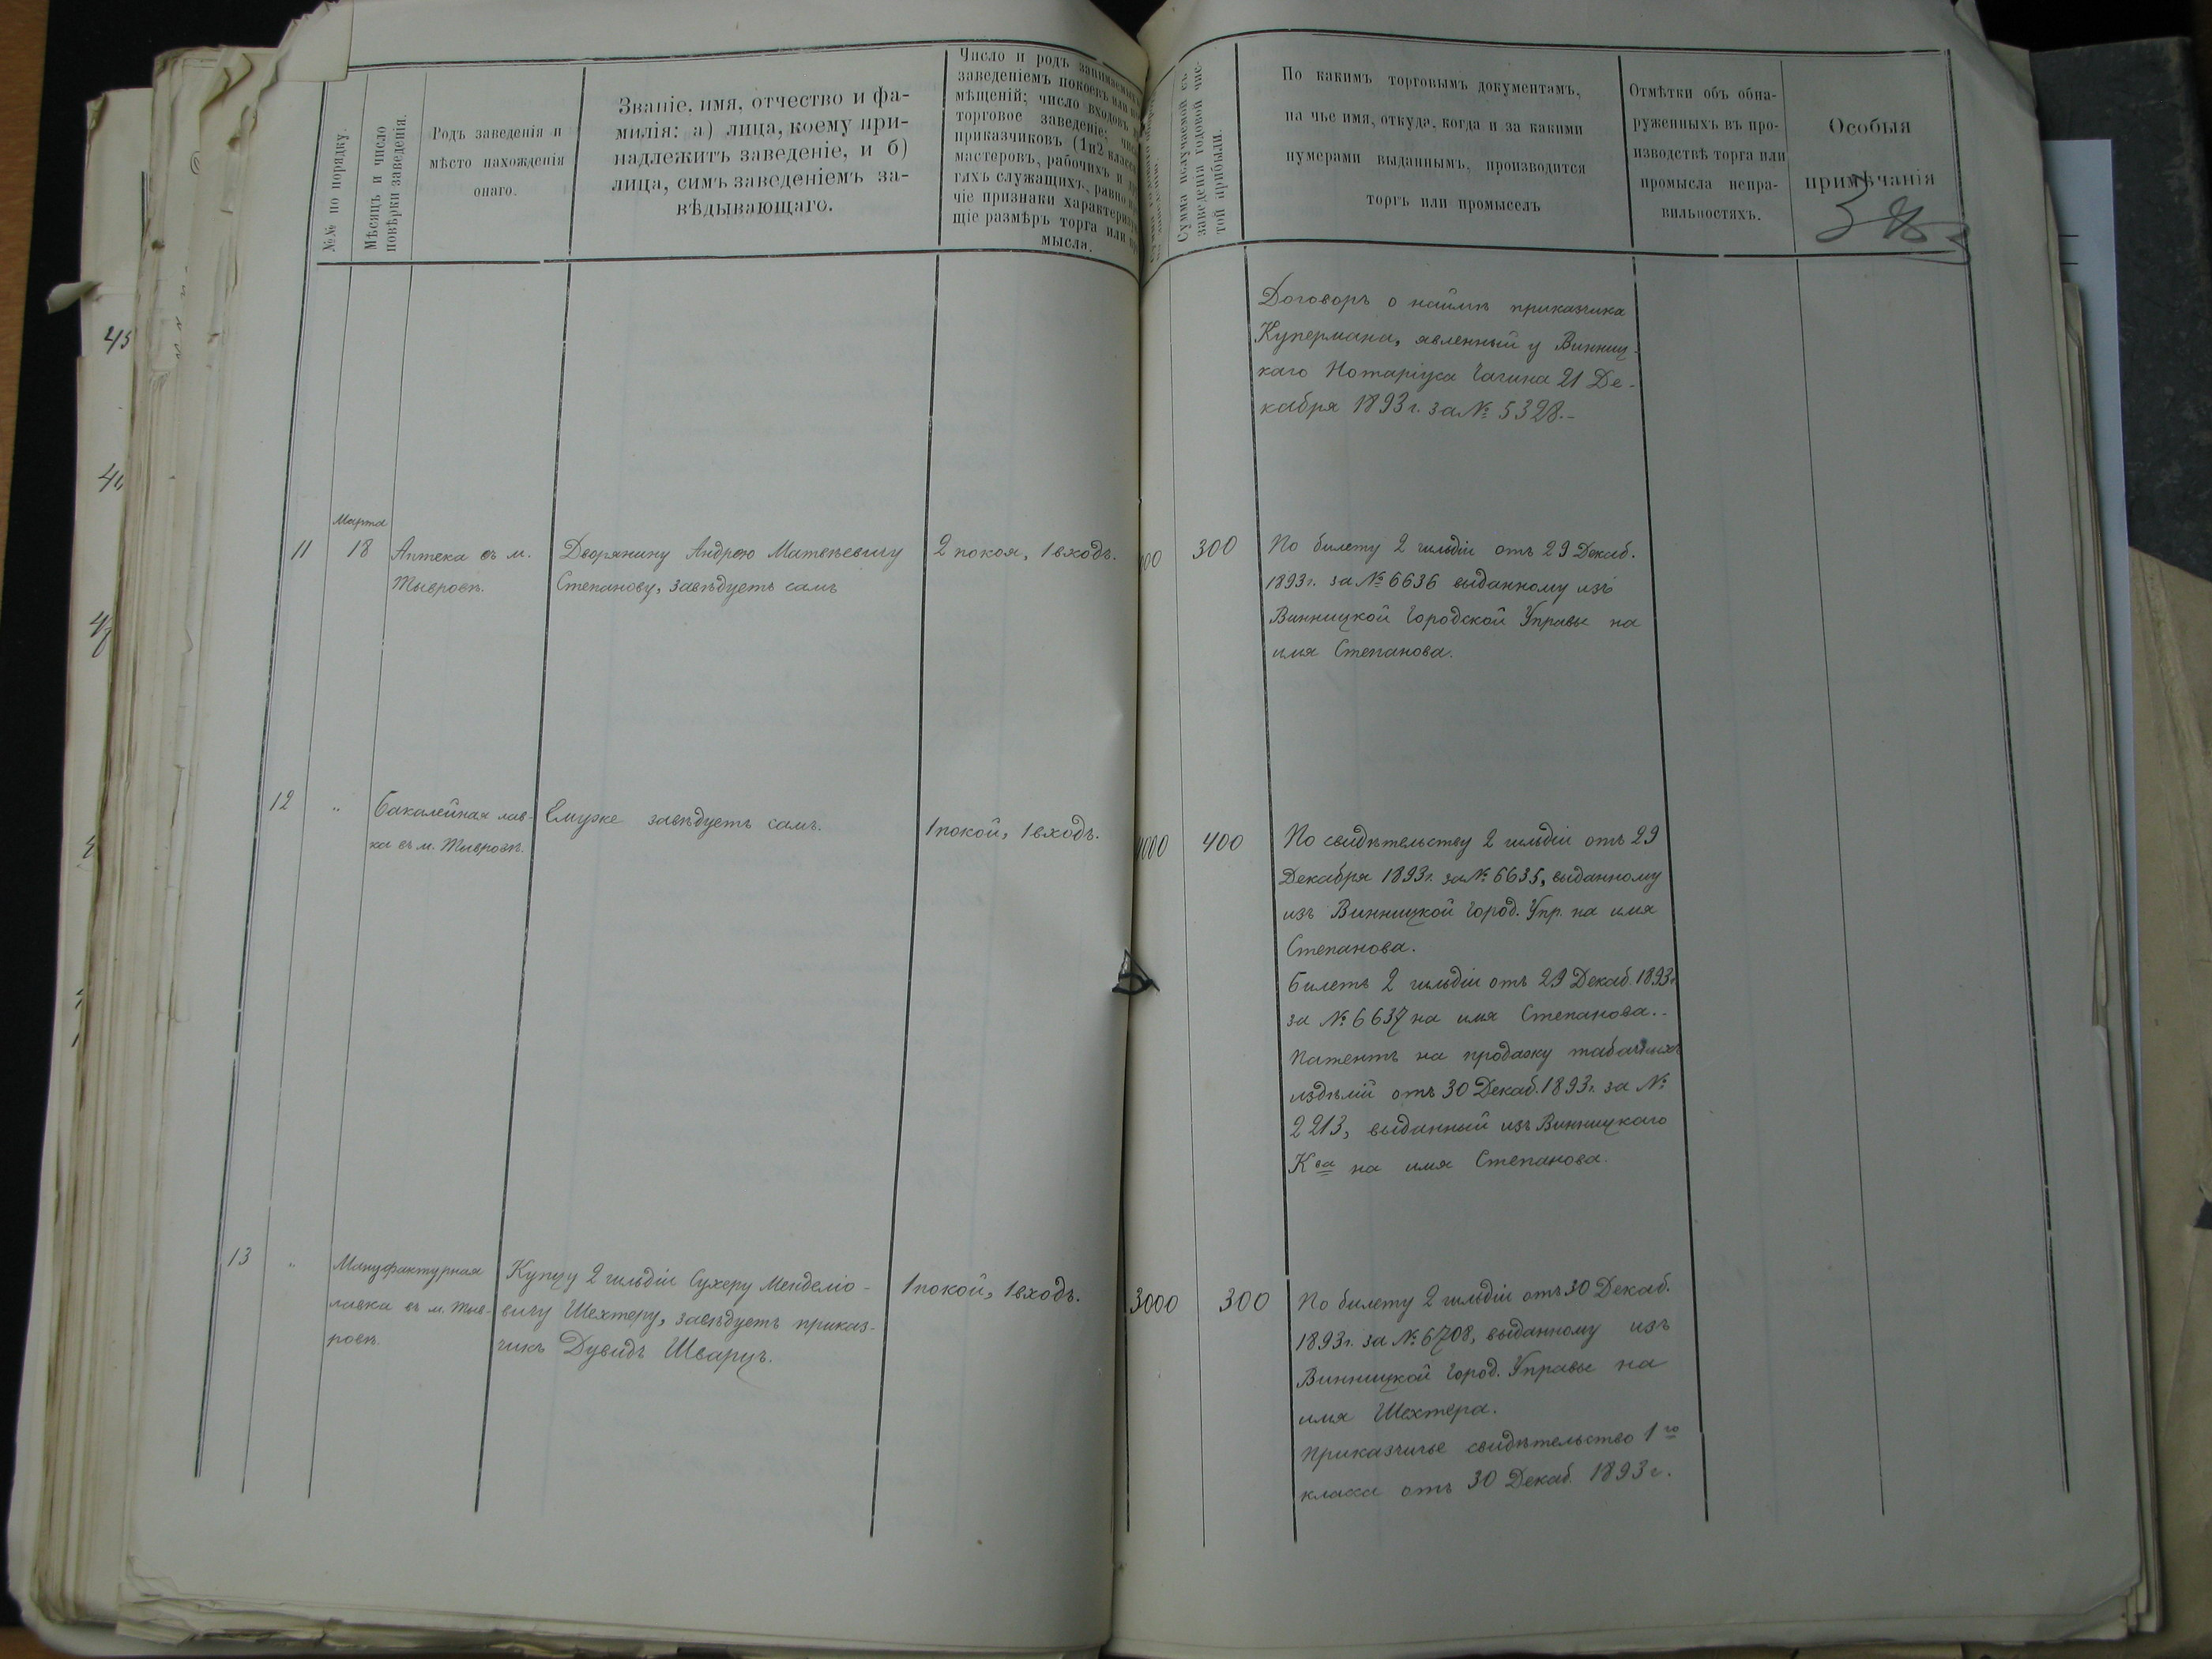 №№ по порядку.
Мѣсяцъ и число
повѣрки заведенія.
Родъ заведенія и
мѣсто нахожденія
онаго.
Званіе, имя, отчество и фа-
милія: а) лица, коему при-
надлежитъ заведеніе, и б)
лица, симъ заведеніемъ за-
вѣдывающаго.
Число и родъ занимаемыхъ
заведеніемъ покоевъ или
мѣщеній; число входовъ
торговое заведеніе;
приказчиковъ (1 и 2 класса
мастеровъ, рабочихъ и
гихъ служащихъ, равно
чіе признаки
щіе размѣръ торга или
мысла.
Сумма получаемой съ
заведенія годовой чис-
той прибыли.
По какимъ торговымъ документамъ,
на чье имя, откуда, когда и за какими
нумерами выданнымъ, производится
торгъ или промыселъ
Отмѣтки объ обна-
руженныхъ въ про-
изводствѣ торга или
промысла непра-
вильностяхъ.
Особыя
примѣчанія
Договоръ о наймѣ приказчика
Купермана, явленный у Винниц-
каго Нотаріуса Чагина 21 Де-
кабря 1893 г. за № 5328.-
Марта
11 18 Аптека въ м. Дворянину Андрею Матвѣевичу 2 покоя, 1 входъ. 300 По билету 2 гильдіи отъ 29 Декаб.
Тывровѣ. Степанову, завѣдуетъ самъ 1893 г. за № 6636 выданному изъ
Винницкой Городской Управы на
имя Степанова.
12 " Бакалейная лав- Емуже завѣдуетъ самъ. 1 покой, 1 входъ. 4000 400 По свидѣтельству 2 гильдіи отъ 29
ка въ м. Тывровѣ. Декабря 1893 г. за № 6635, выданному
изъ Винницкой Город. Упр. на имя
Степанова.
Билетъ 2 гильдіи отъ 29 Декаб. 1893 г
за № 6637 на имя Степанова.-
Патентъ на продажу табачныхъ
издѣлій отъ 30 Декаб. 1893 г. за №
2213, выданный изъ Винницкаго
К ва на имя Степанова.
13 " Мануфактурная Купцу 2 гильдіи Сухеру Менделіо- 1 покой, 1 входъ. 3000 300 По билету 2 гильдіи отъ 30 Декаб.
лавка въ м. Тыв- вичу Шехтеру, завѣдуетъ приказ- 1893 г. за № 6708, выданному изъ
ровѣ. чикъ Дувидъ Шварцъ. Винницкой Город. Управы на
имя Шехтера.
Приказчичье свидѣтельство 1 го
класса отъ 30 Декаб. 1893 г.